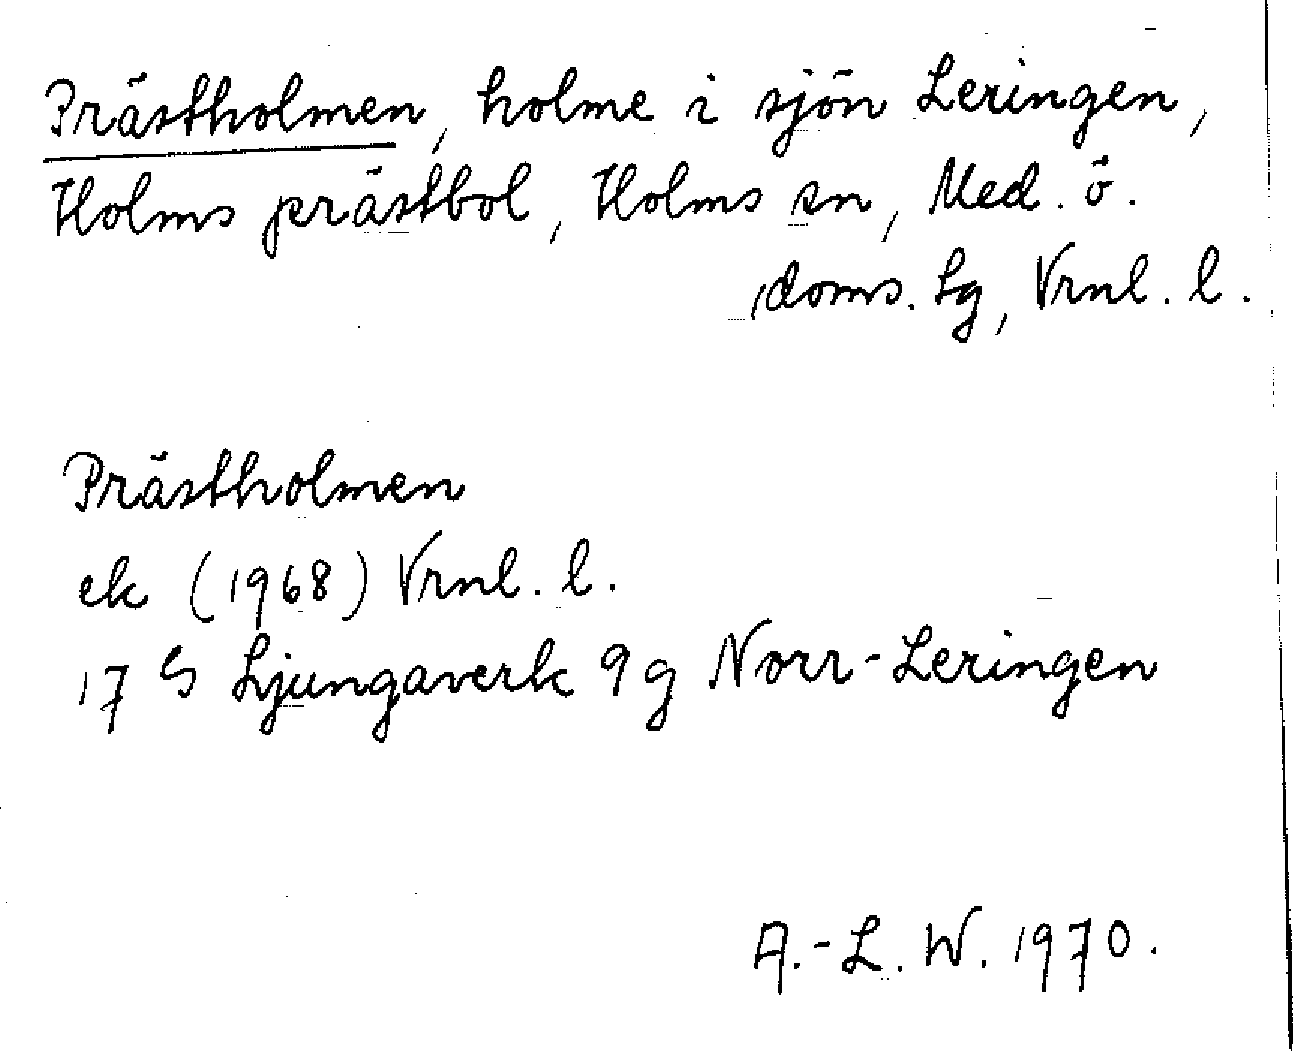 Prästholmen, holme i sjön Leringen,
Holms prästbol, Holms sn, Med. ö.
doms. lg, Vrnl. l.
Prästholmen
ek (1968) Vrnl. l.
17 G Ljungaverk 9 g Norr-Leringen
A.-L. W. 1970.